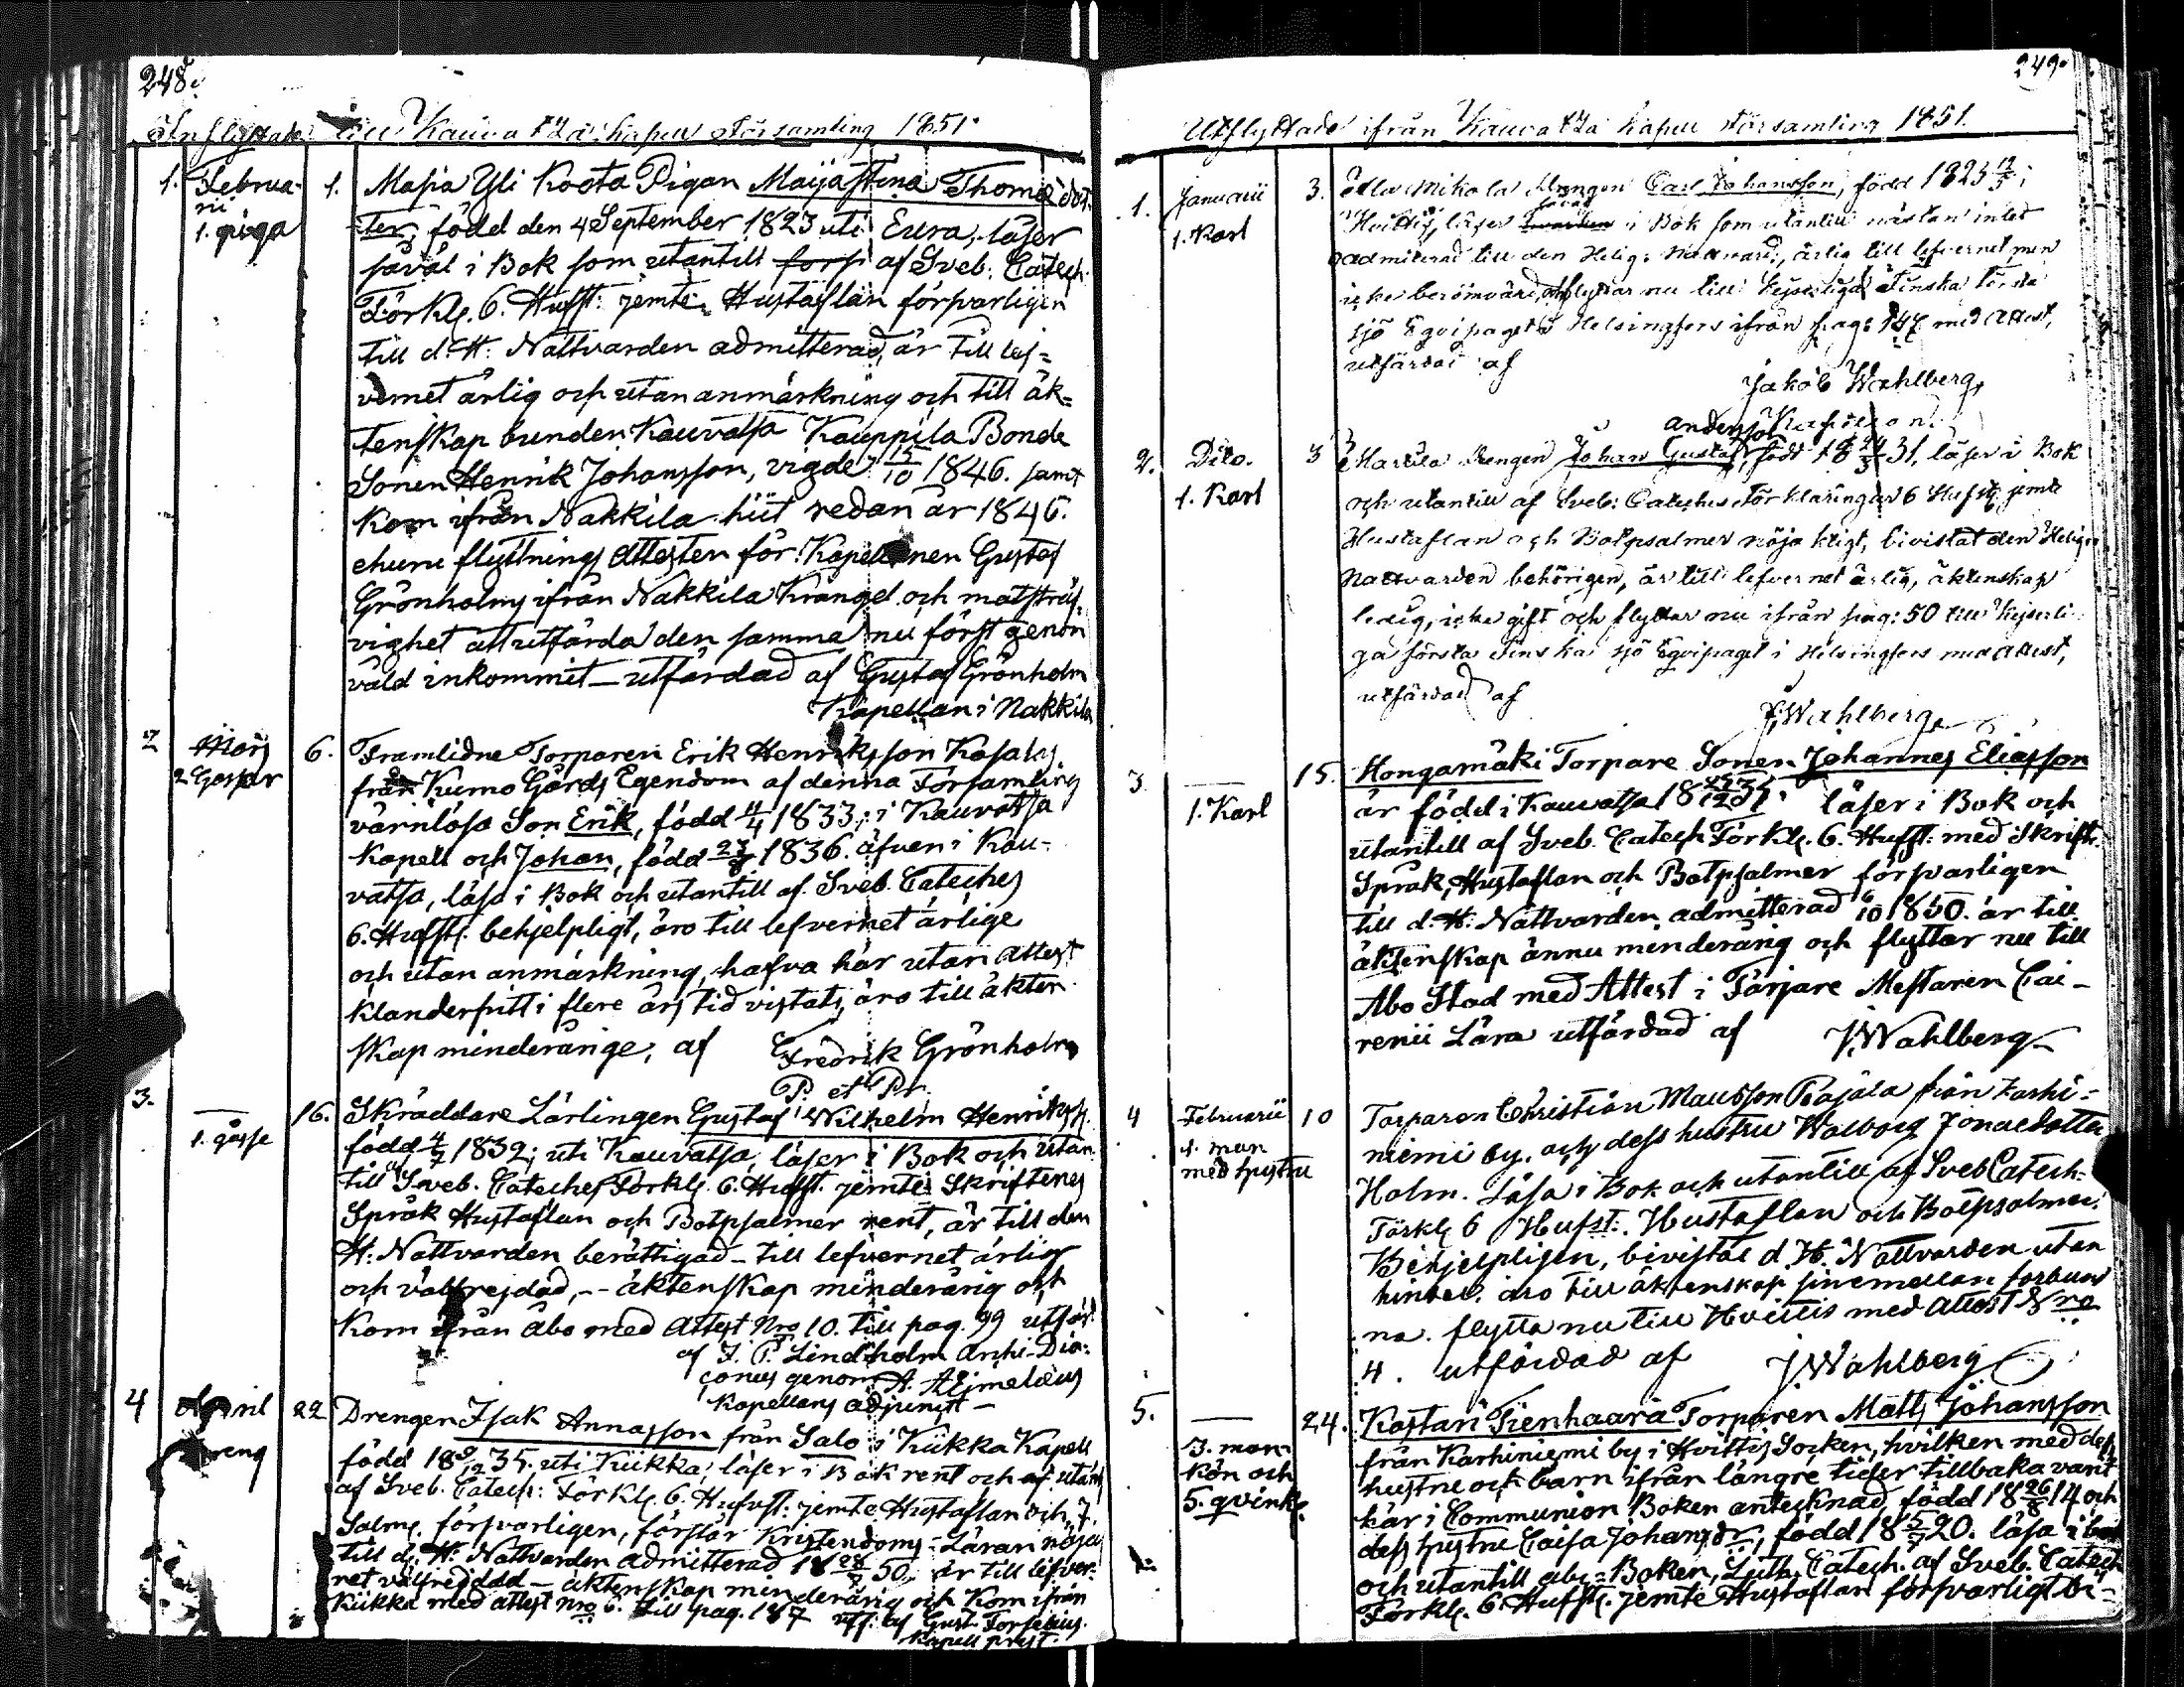 248.
Inflyttade till Kauvatsa kapell Församling 1851.
1. Februarii 1. piga
1. Masia Yli Koota Pigan Maijastina Thomædot-
ter, född den 4 September 1823 uti Eura, läser
såväl i Bok som utantill af Sveb: Catech.
Förkl. 6. Hufst: jemte Hustaflan försvarligen
till d. H: Nattvarden admitterad, är till lef=
vernet ärlig och utan anmärkning och till äk=
tenskap bunden Kauvatsa Kauppila Bonde
Sonen Henrik Johansson, vigde 15/10 1846. samt
Kom ifrån Nakkila hiit redan år 1846.
ehuru flyttnings Attesten för Kapellanen Gustaf
Grönholms ifrån Nakkila Krångel och
vighet att utfärda den samma nu först genom
våld inkommit – utfärdad af Gustaf Grönholm
Kapellan i Nakkila
2 Mars 2 Gossar
6. Framlidne Torparen Erik Henriksson Kasals
från Kumo Gårds Egendom af denna Församling
värnlösa Son Erik, född 4/4 1833; i Kauvatsa
Kapell och Johan, född 1836. äfven i Kau-
vatsa, läsa i Bok och utantill af Sveb. Cateches
6. Hufst. behjelpligt, äro till lefvernet ärlige
och utan anmärkning, hafva här utan Attest
klanderfritt i flere års tid vistats, äro till äkten
skap minderånge, af Fredrik Grönholm
P. et Pr.
3. — 1. gosse
16. Skräddare Lärlingen Gustaf Wilhelm Henrikss.
född 4/7 1832; uti Kauvatsa, läser i Bok och utan
till af Sveb. Cateches Förkl. 6. Hufst. jemte Skriftenes
Språk Hustaflan och Botpsalmer rent, är till den
H: Nattvarden berättigad – till lefvernet ärlig
och välfrejdad, -- äktenskap minderårig och
Kom ifrån Åbo med Attest Nro 10. till pag. 99 utfär.
af J. P. Lindholm Archi-Dia-
conus genom A. Hjmelæus
Kapellans adjunct –
4 April dreng
22 Drengen Isak Annasson från Salo i Kiikka Kapell
född 18 35. uti Kiikka, läser i Bok rent och utan
af Sveb. Catech: Förkl. 6. Hufvst: jemte Hustaflan och 7.
Salm. försvarligen, förstår Kristendoms-Läran nöja
till d. H: Nattvarden admitterad 18 50, är till lefver-
net välfrejdad – äktenskap minderårig och Kom ifrån
Kiikka med attest nro 6. till pag. 187 utf. af Gust. Forselius.
Kapell prest.
249.
Utflyttade ifrån Kauvatsa kapell Församling 1851.
1. Januarii 1. Karl
3. Mikola Drengen Carl Johansson, född 1823 12/5;
Huittis, läser i Bok som utantill nästan intet
admiterad till den Helig: Nattvard, ärlig till lefvernet men
icke berömvärd, afflyttar nu till Kejserliga Finska första
sjö Eqvipaget i Helsingfors ifrån pag: 147 med Attest,
utfärdad af
Jakob Wahlberg,
2. Dito. 1. Karl
3 Martila Drengen Johan Gustaf Andersson, född 18 31, läser i Bok
och utantill af Sveb: Cateches Förklaringar 6 Hufst. jemte
Hustaflan och Botpsalmer nöjaktigt, bivistat den Helig.
Nattvarden behörigen, är till lefvernet ärlig, äktenskap
ledig, icke gift och flyttar nu ifrån pag: 50 till Kejserli-
ga första Finska sjö Eqvipaget i Helsingfors med Attest,
utfärdad af
J. Wahlberg.
3 — 1. Karl
15. Hongamäki Torpare Sonen Johannes Eliasson
är född i Kauvatsa 18 läser i Bok och
utantill af Sveb. Catech Förkl. 6. Hufst: med Skrift.
Språk, Hustaflan och Botpsalmer försvarligen
till d. H: Nattvarden admitterad 6/10 1850. är till
äktenskap ännu minderårig och flyttar nu till
Åbo Stad med Attest i Färjare Mestaren Cai-
renii Lära utfärdad af J. Wahlberg
4 Februarii 1. man med hustru
10 Torparen Christian Mattsson Rajala från Karhi-
niemi by. och dess hustru Walborg Jonædotter
Holm. Läsa i Bok och utantill af Sveb Catech-
Förkl. 6 Hufst: Hustaflan och Botpsalmer.
Behjelpligen, bivistat d. H. Nattvarden utan
hinder. äro till äktenskap sinemellan förbund
na. flytta nu till Hvittis med Attest Nro
4. utfärdad af J. Wahlberg
5. — 3. man kön och 5. qvink.
24. Kastari Tienhaara Torparen Matts Johansson
från Karhiniemi by i Hvittis Socken, hvilken med dess
hustru och barn ifrån längre tider tillbaka varit
här i Communion Boken antecknad, född 18 26/8 14 och
dess hustru Caisa Johansdr, född 18 20. läsa i bok
och utantill abc-Boken, Luth. Catech. af Sveb. Catech
Förkl. 6. Hufst. jemte Hustaflan försvarligt bi-